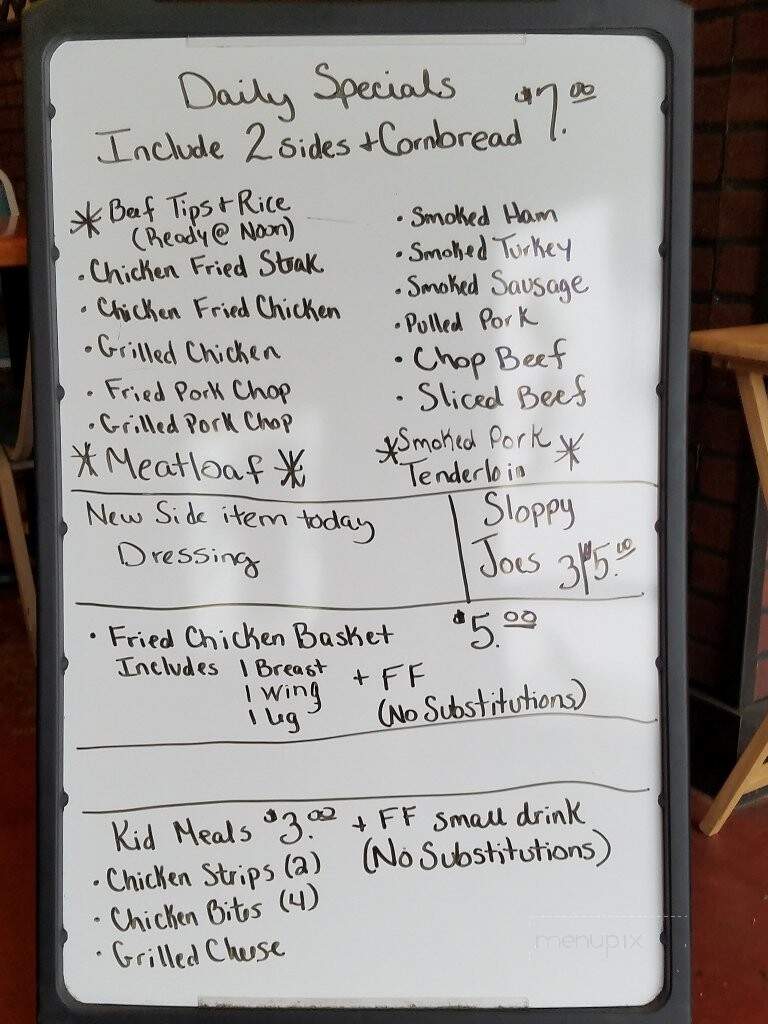 Daily Specials
Include 2 sides + Cornbread $7.00
* Beef Tips + Rice
(Ready @ Noon)
• Chicken Fried Steak
• Chicken Fried Chicken
• Grilled Chicken
• Fried Pork Chop
• Grilled Pork Chop
* Meatloaf *
• Smoked Ham
• Smoked Turkey
• Smoked Sausage
• Pulled Pork
• Chop Beef
• Sliced Beef
* Smoked Pork *
Tenderloin
New Side item today
Dressing
Sloppy
Joes 3/$5.00
• Fried Chicken Basket $5.00
Includes 1 Breast + FF
1 Wing
1 Leg (No Substitutions)
Kid Meals $3.00 + FF small drink
(No Substitutions)
• Chicken Strips (2)
• Chicken Bites (4)
• Grilled Cheese
menupix